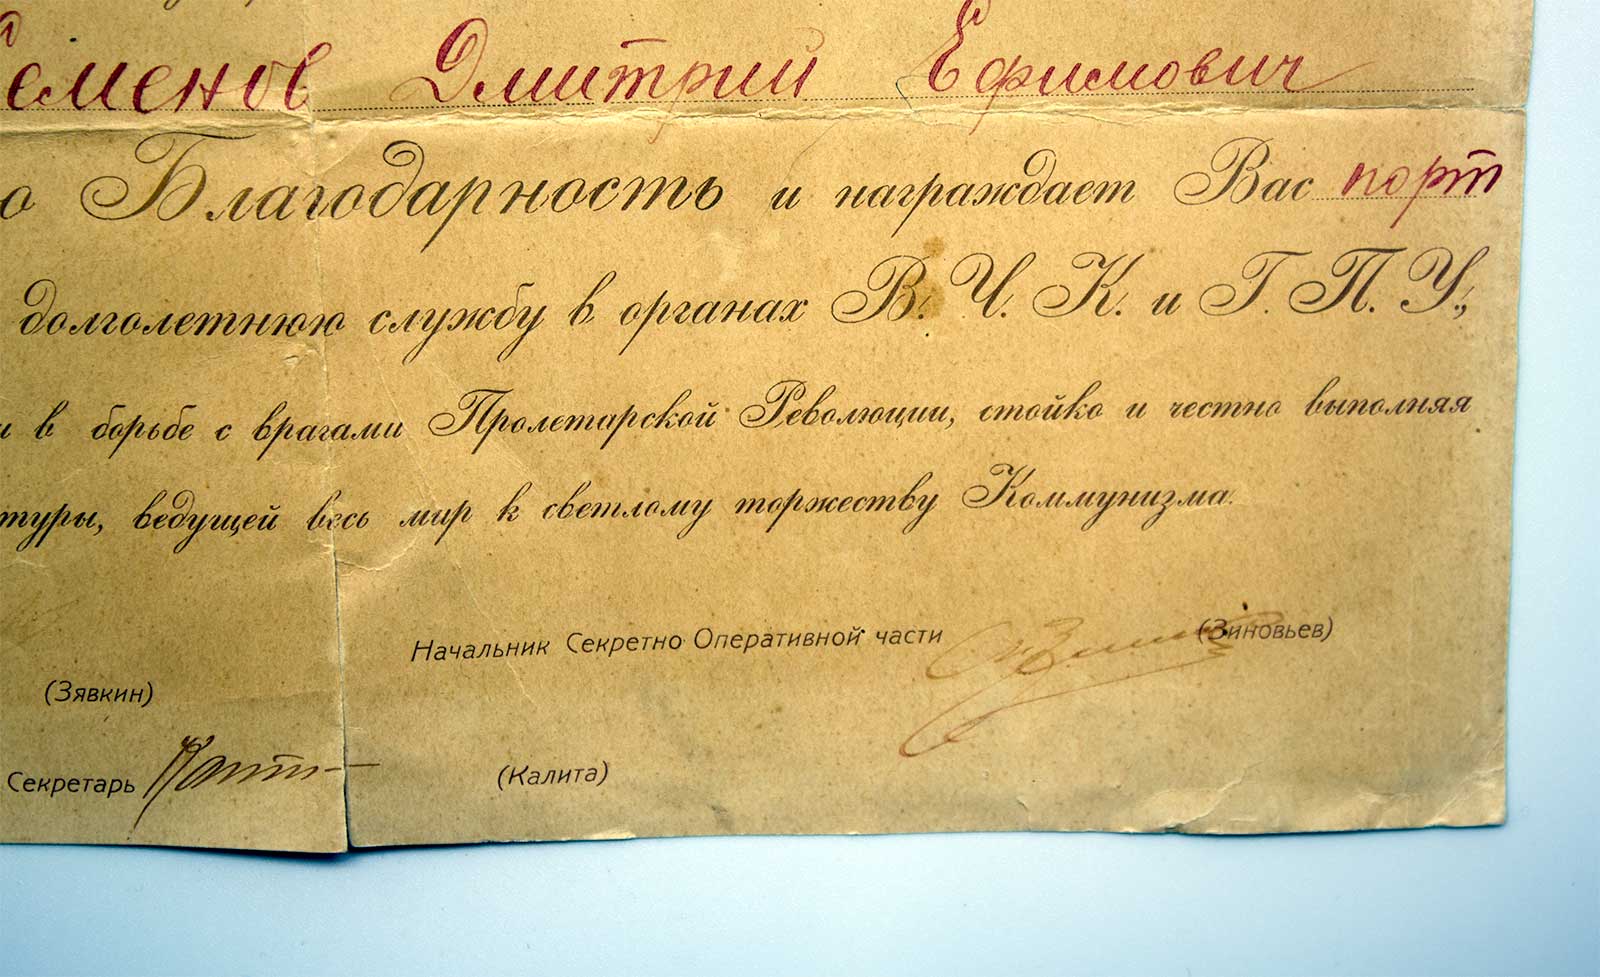 Семенов Дмитрий Ефимович
о Благодарность и награждает Вас порт
долголетнюю службу в органах В. Ч. К. и Г. П. У.,
и в борьбе с врагами Пролетарской Революции, стойко и честно выполняя
туры, ведущей весь мир к светлому торжеству Коммунизма.
Начальник Секретно Оперативной части (Зиновьев)
(Зявкин)
Секретарь (Калита)